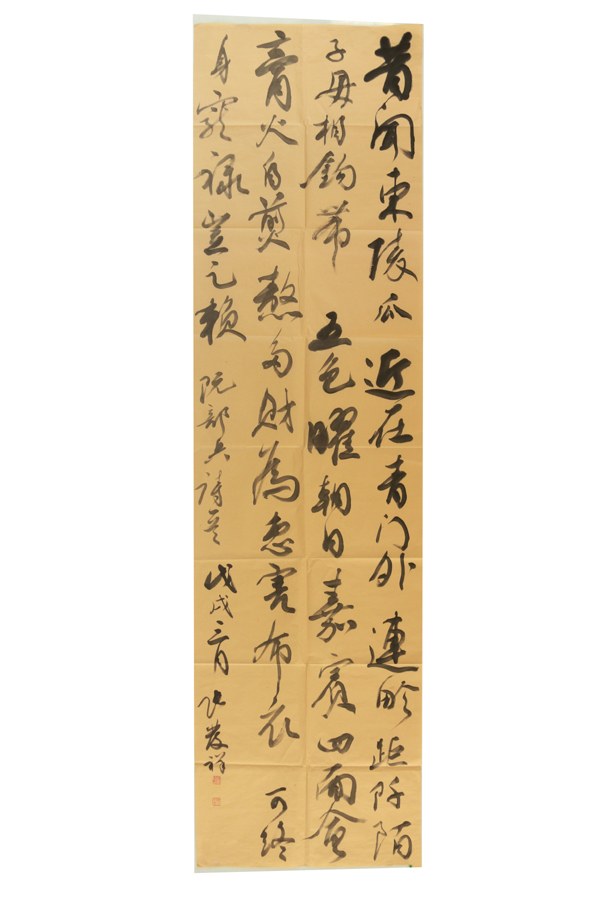 昔聞東陵瓜近在青门外連畛距阡陌
子母相鈎帶五色曜朝日嘉賓四面會
膏火自煎熬多財為患害布衣可終
身寵祿豈足賴阮部兵詩 戊戌三月 張發祥